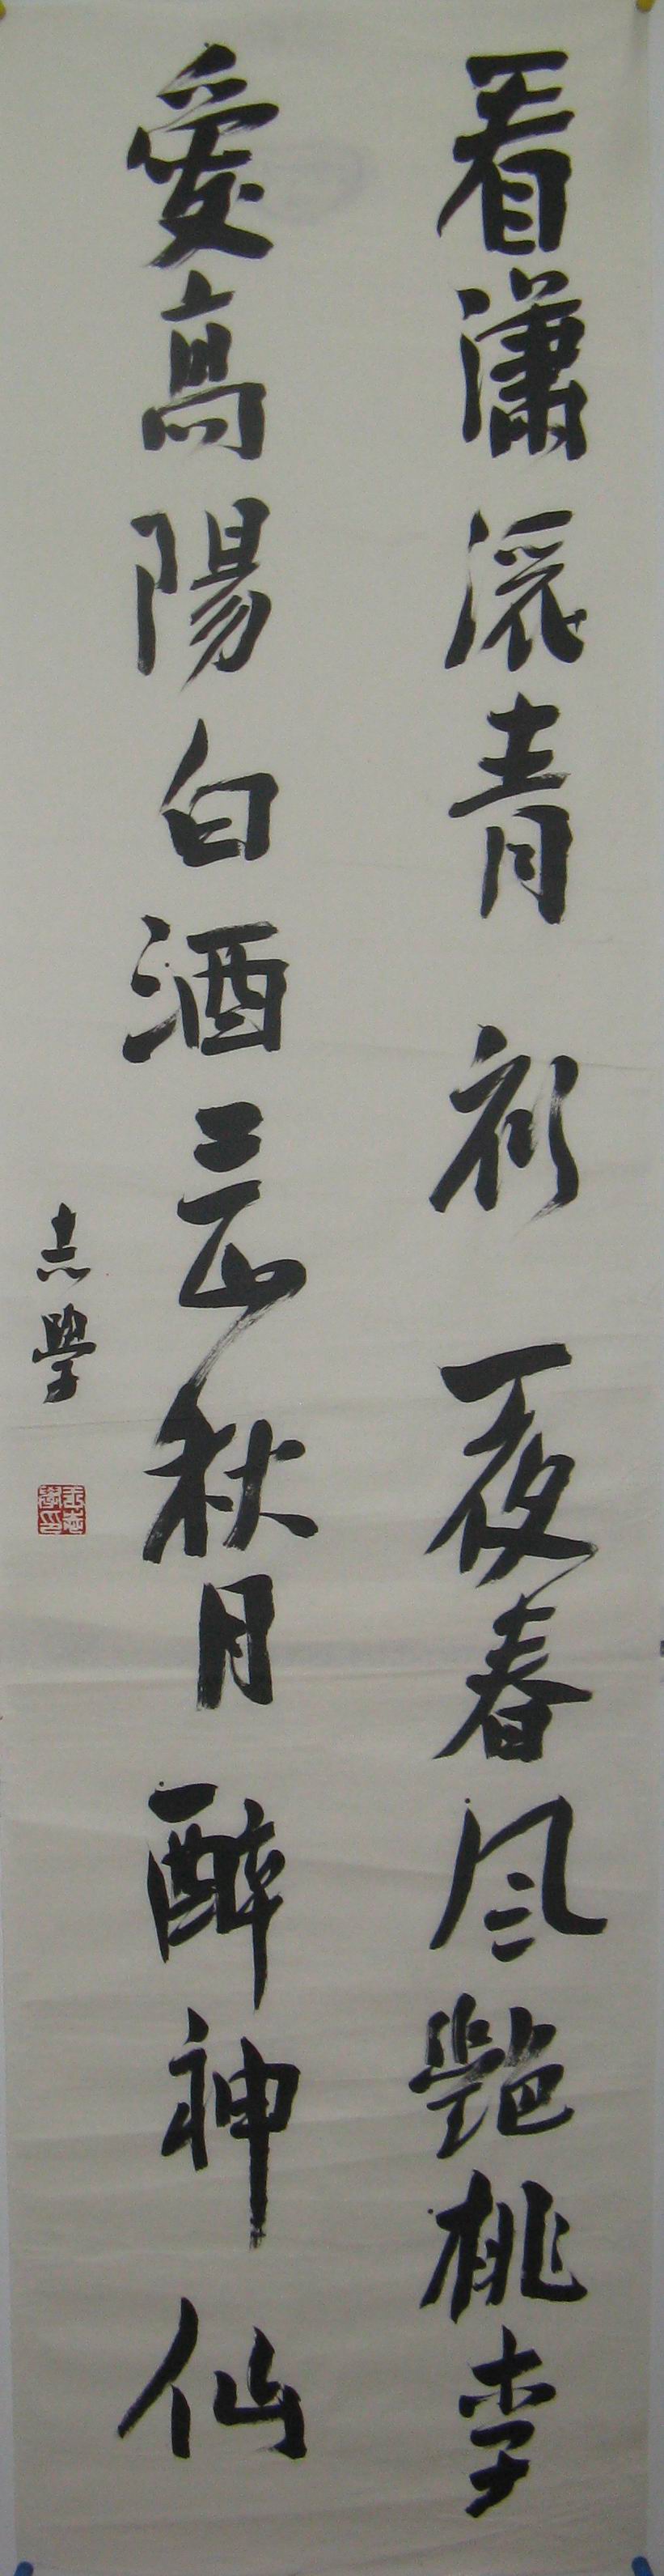 看瀟青衫一夜春风艷桃李
愛高陽白酒三山秋月醉神仙
志學